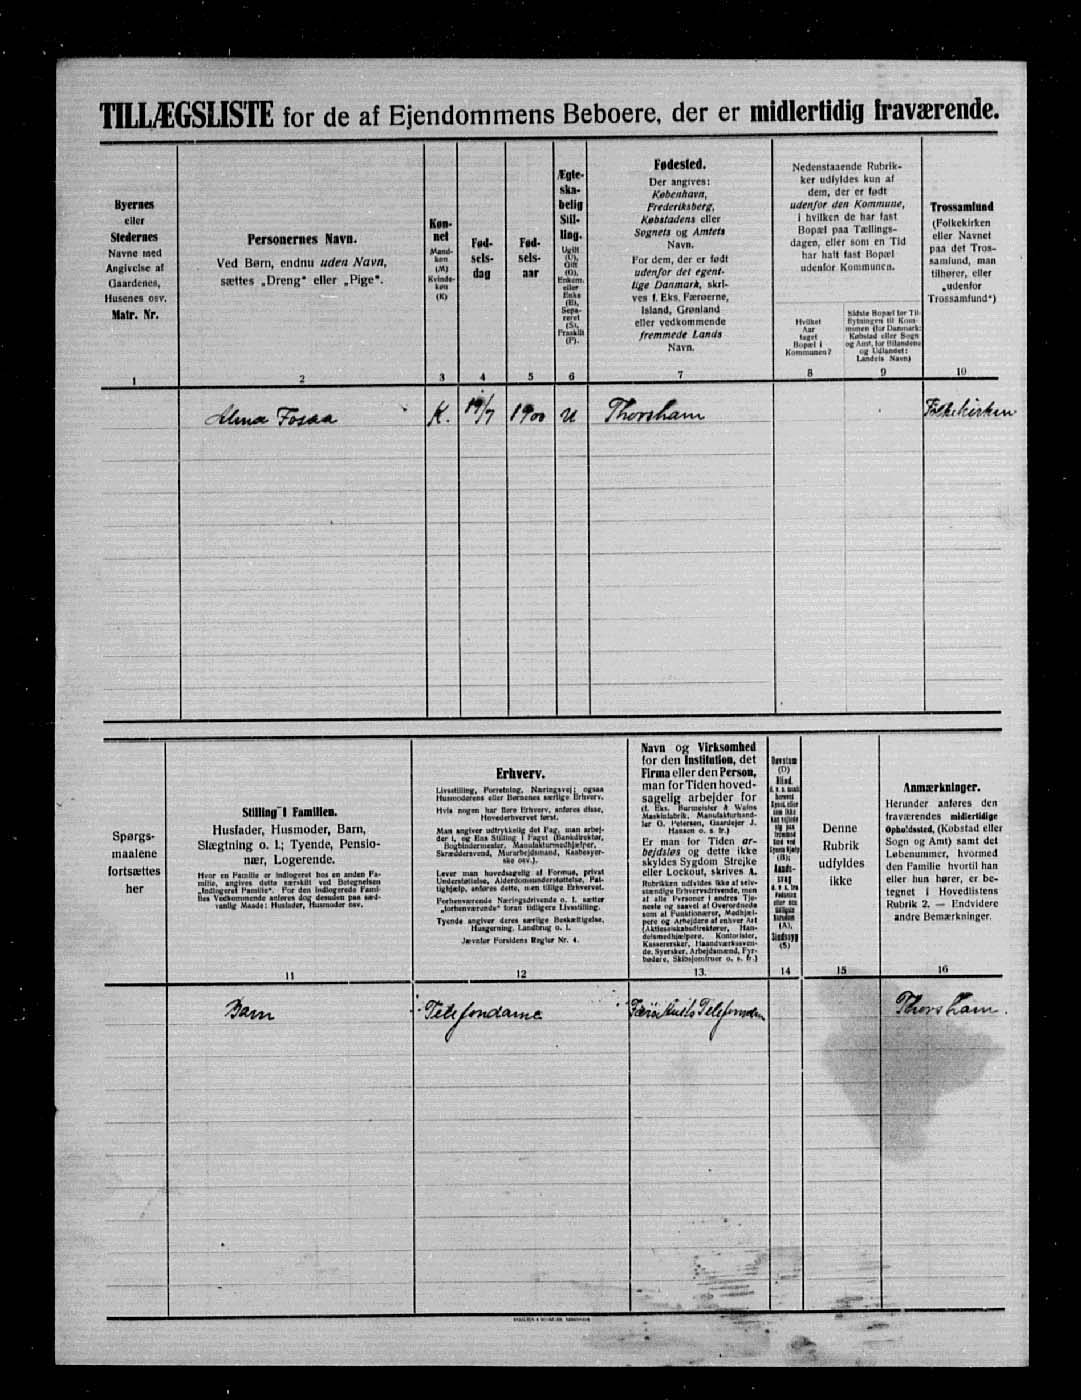 TILLÆGSLISTE for de af Ejendommens Beboere, der er midlertidig fraværende.
Byernes
eller
Stedernes
Navne med
Angivelse af
Gaardenes,
Husenes osv.
Matr. Nr.
1
Personernes Navn.
Ved Børn, endnu uden Navn,
sættes „Dreng" eller „Pige".
2
Køn-
net
Mand-
køn
(M)
Kvinde-
køn
(K)
3
Fød-
sels-
dag
4
Fød-
sels-
aar
5
Ægte-
ska-
belig
Stil-
ling.
Ugift
(U),
Gift
(G),
Enkem.
eller
Enke
(E),
Sepa-
reret
(S),
Fraskilt
(F).
6
Fødested.
Der angives:
København,
Frederiksberg,
Købstadens eller
Sognets og Amtets
Navn.
For dem, der er født
udenfor det egent-
lige Danmark, skri-
ves f. Eks. Færøerne,
Island, Grønland
eller vedkommende
fremmede Lands
Navn.
7
Nedenstaaende Rubrik-
ker udfyldes kun af
dem, der er født
udenfor den Kommune,
i hvilken de har fast
Bopæl paa Tællings-
dagen, eller som en Tid
har haft fast Bopæl
udenfor Kommunen.
Hvilket
Aar
taget
Bopæl i
Kommunen?
8
Sidste Bopæl før Til-
flytningen til Kom-
munen (for Danmark:
Købstad eller Sogn
og Amt, for Bilandene
og Udlandet:
Landets Navn)
9
Trossamfund
(Folkekirken
eller Navnet
paa det Tros-
samfund, man
tilhører, eller
„udenfor
Trossamfund")
10
Alma Fosaa K. 19/7 1900 U Thorshavn Folkekirken
Spørgs-
maalene
fortsættes
her
Stilling i Familien.
Husfader, Husmoder, Barn,
Slægtning o. l.; Tyende, Pensio-
nær, Logerende.
Hvor en Familie er indlogeret hos en anden Fa-
milie, angives dette særskilt ved Betegnelsen
„Indlogeret Familie". For den indlogerede Fami-
lies Vedkommende anføres dog desuden paa sæd-
vanlig Maade: Husfader, Husmoder osv.
11
Erhverv.
Livsstilling, Forretning, Næringsvej; ogsaa
Husmoderens eller Børnenes særlige Erhverv.
Hvis nogen har flere Erhverv, anføres disse,
Hovederhvervet først.
Man angiver udtrykkelig det Fag, man arbej-
der i, og Ens Stilling i Faget (Bankdirektør,
Bogbindermester, Manufakturmedhjælper,
Skræddersvend, Murarbejdsmand, Kaabesyer-
ske osv.).
Lever man hovedsagelig af Formue, privat
Understøttelse, Alderdomsunderstøttelse, Fat-
tighjælp, anføres dette, men tillige Erhvervet.
Forhenværende Næringsdrivende o. l. sætter
„forhenværende" foran tidligere Livsstilling.
Tyende angiver deres særlige Beskæftigelse,
Husgerning, Landbrug o. l.
Jævnfør Forsidens Regler Nr. 4.
12
Navn og Virksomhed
for den Institution, det
Firma eller den Person,
man for Tiden hoved-
sagelig arbejder for
(f. Eks. Burmeister & Wains
Maskinfabrik, Manufakturhand-
ler G. Petersen, Gaardejer J.
Hansen o. s. fr.)
Er man for Tiden ar-
bejdsløs og dette ikke
skyldes Sygdom Strejke
eller Lockout, skrives A.
Rubrikken udfyldes ikke af selv-
stændige Erhvervsdrivende, men
af alle Personer i andres Tje-
neste og saavel af Overordnede
som af Funktionærer, Medhjæl-
pere og Arbejdere af enhver Art
(Aktieselskabsdirektører, Han-
delsmedhjælpere, Kontorister,
Kassererske, Haandværkssven-
de, Syersker, Arbejdsmænd, Fyr-
bødere, Skibsjomfruer o. s. fr.)
13.
Døvstum
(D)
Blind,
14
Denne
Rubrik
udfyldes
ikke
15
Anmærkninger.
Herunder anføres den
fraværendes midlertidige
Opholdssted, (Købstad eller
Sogn og Amt) samt det
Løbenummer, hvormed
den Familie hvortil han
eller hun hører, er be-
tegnet i Hovedlistens
Rubrik 2. — Endvidere
andre Bemærkninger.
16
Barn Telefondame Thorshavn.